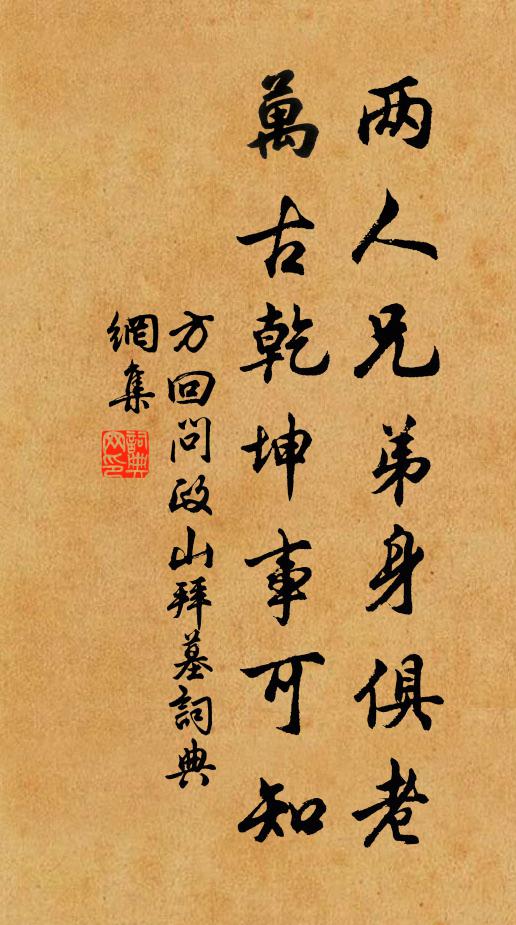 两人兄弟身俱老
萬古乾坤事可知
方回問政山拜墓詞典
網集
詞典
网印